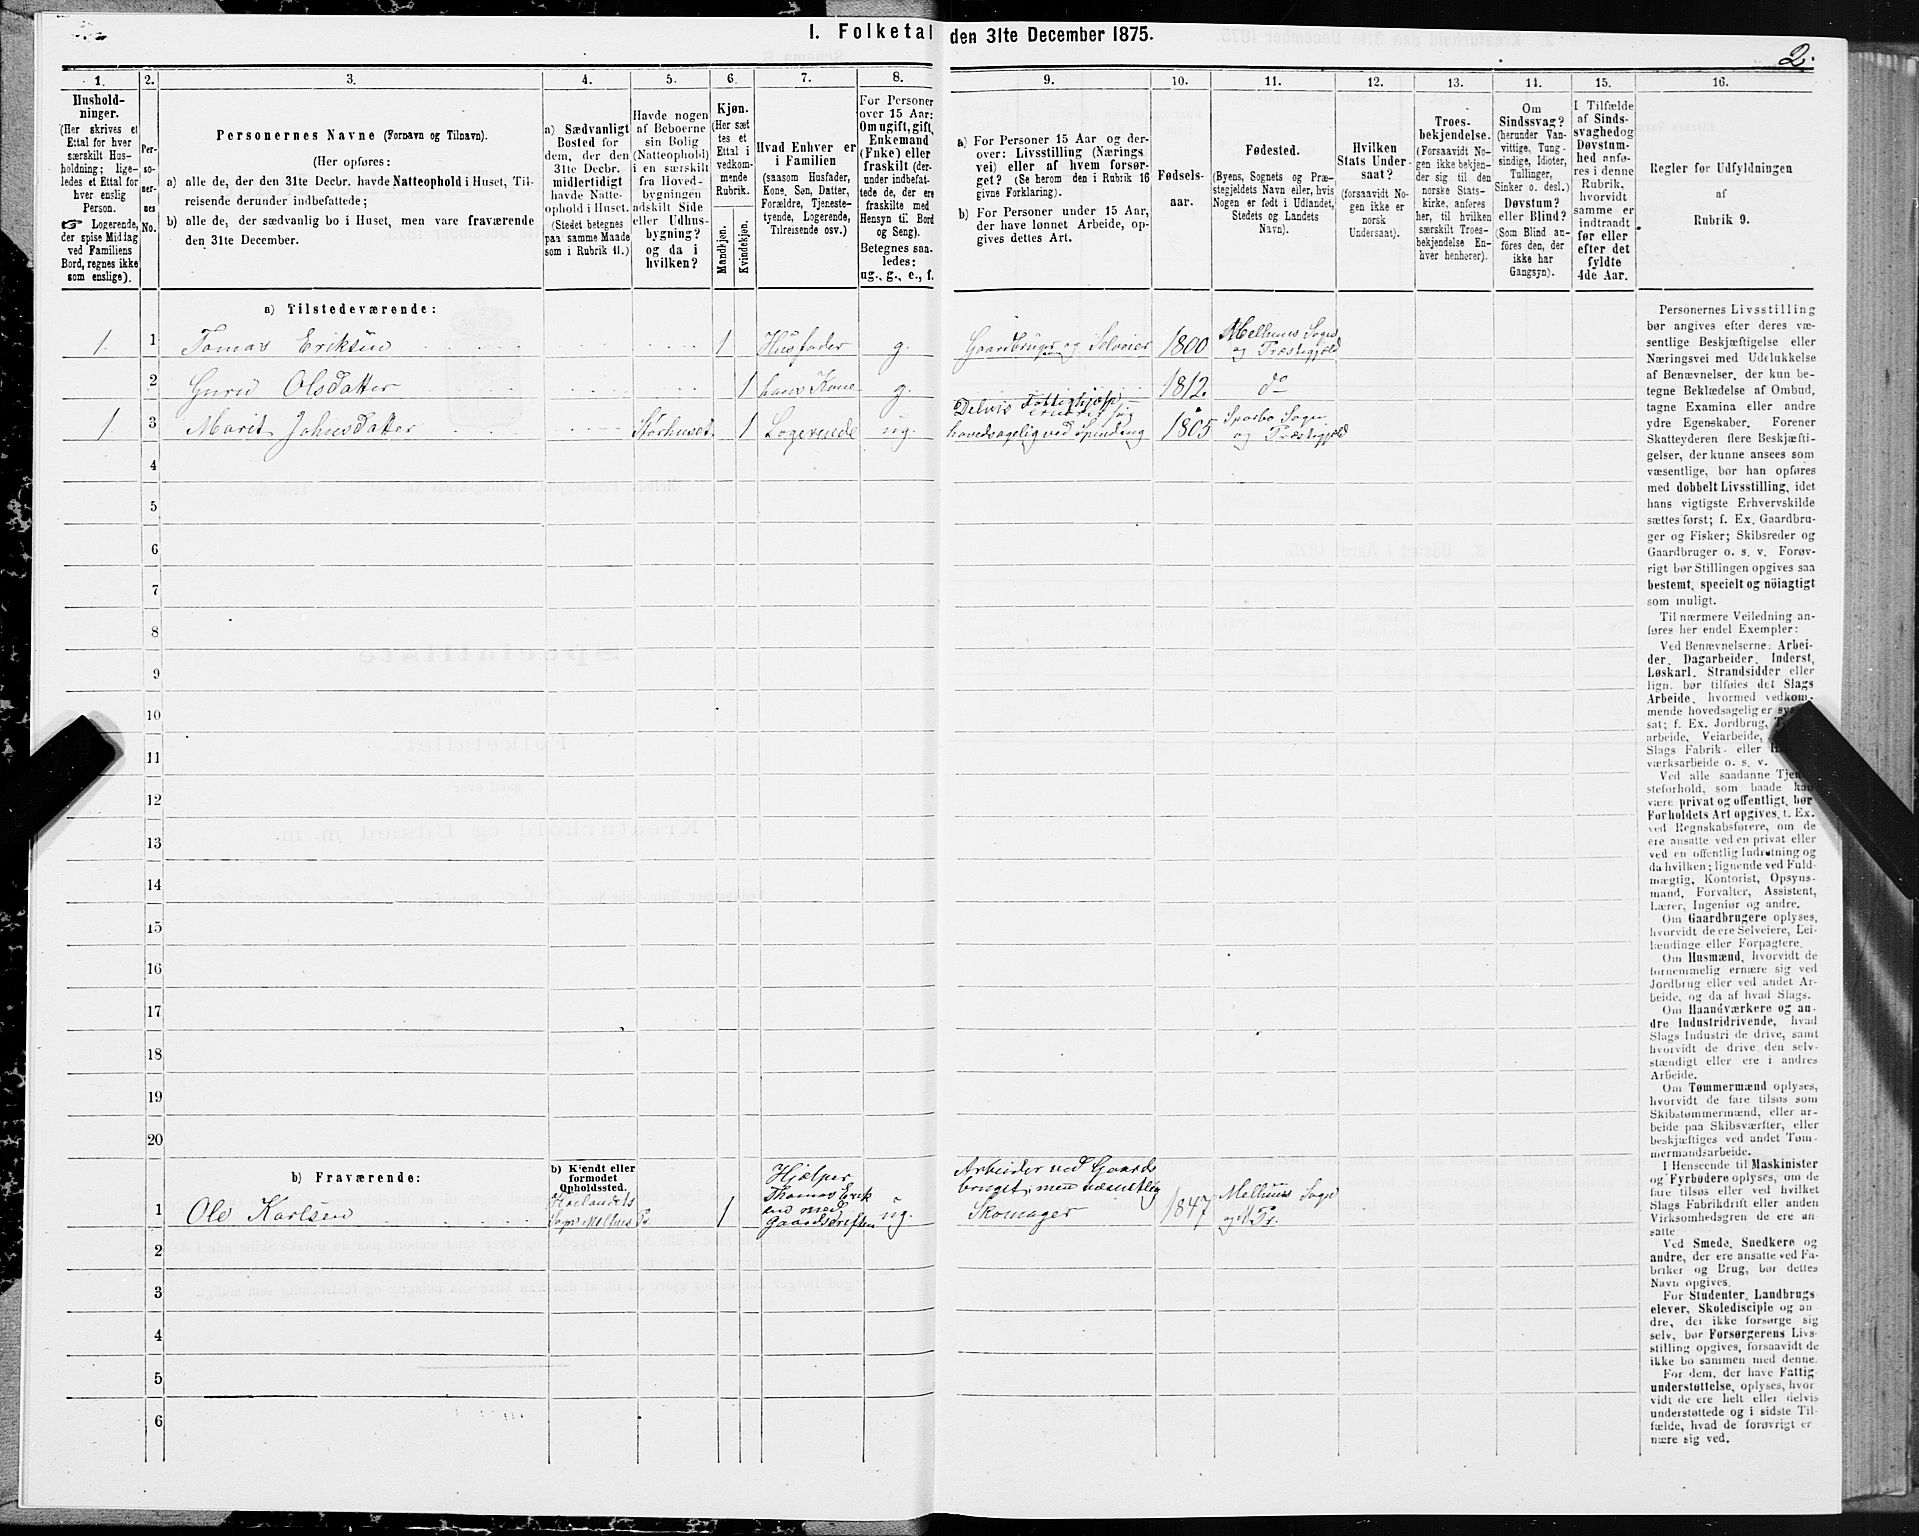 I. Folketal den 31te December 1875.
2.
1.
2.
3.
4.
5.
6.
7.
8.
9.
10.
11.
12.
13.
14.
15.
16.
Hushold-
ninger.
(Her skrives et
Ettal for hver
særskilt Hus-
holdning; lige-
ledes et Ettal for
hver enslig
Person.
☞ Logerende,
der spise Middag
ved Familiens
Bord, regnes ikke
som enslige).
Per-
so-
ner-
nes
No.
Personernes Navne (Fornavn og Tilnavn).
(Her opføres:
a) alle de, der den 31te Decbr. havde Natteophold i Huset, Til-
reisende derunder indbefattede;
b) alle de, der sædvanlig bo i Huset, men vare fraværende
den 31te December.
a) Sædvanligt
Bosted for
dem, der den
31te Decbr.
midlertidigt
havde Natte-
ophold i Huset.
(Stedet betegnes
paa samme Maade
som i Rubrik 11.)
Havde nogen
af Beboerne
sin Bolig
(Natteophold)
i en særskilt
fra Hoved-
bygningen
adskilt Side
eller Udhus-
bygning?
og da i
hvilken?
Kjøn.
(Her sæt
tes et
Ettal i
vedkom-
mende
Rubrik.
Mandkjøn.
Kvindekjøn.
Hvad Enhver er
i Familien
(saasom Husfader,
Kone, Søn, Datter,
Forældre, Tjeneste-
tyende, Logerende,
Tilreisende osv.)
For Personer
over 15 Aar:
Om ugift, gift,
Enkemand
(Enke) eller
fraskilt (der-
under indbefat-
tede de, der ere
fraskilte med
Hensyn til Bord
og Seng).
Betegnes saa-
ledes:
ug., g., e., f.
a) For Personer 15 Aar og der-
over: Livsstilling (Nærings
vei) eller af hvem forsør-
get? (Se herom den i Rubrik 16
givne Forklaring).
b) For Personer under 15 Aar,
der have lønnet Arbeide, op-
gives dettes Art.
Fødsels-
aar.
Fødested.
(Byens, Sognets og Præ-
stegjeldets Navn eller, hvis
Nogen er født i Udlandet,
Stedets og Landets
Navn).
Hvilken
Stats Under-
saat?
(forsaavidt No-
gen ikke er
norsk
Undersaat).
Troes-
bekjendelse.
(Forsaavidt No-
gen ikke bekjen-
der sig til den
norske Stats-
kirke, anføres
her, til hvilken
særskilt Troes-
bekjendelse En-
hver henhører).
Om
Sindssvag?
(herunder Van-
vittige, Tung-
sindige, Idioter,
Tullinger,
Sinker o. desl.)
Døvstum?
eller Blind?
(Som Blind an-
føres den, der
ikke har
Gangsyn).
I Tilfælde
af Sinds-
svaghed og
Døvstum-
hed anfø-
res i denne
Rubrik,
hvorvidt
samme er
indtraadt
før eller
efter det
fyldte
4de Aar.
Regler for Udfyldningen
af
Rubrik 9.
a) Tilstedeværende:
1. 1 Tomas Eriksen 1 Husfader g. Gaardbruger og Selveier 1800 Melhuus Sogn
og Præstegjeld
2 Guru Olsdatter 1 hans Kone g. 1812. do
1. 3 Marit Johnsdatter Storhuset 1 Logerende ug. Delvis Fattighjælp
hovedsagelig ved Spinding 1805 Sparbo Sogn
og Præstegjeld
4
5
6
7
8
9
10
11
12
13
14
15
16
17
18
19
20
b) Fraværende:
b) Kjendt eller
formodet
Opholdssted.
1 Ole Karlsen Sogn Melhus Pr. 1 Hjælper
Thomas Erik
en med
Gaardsdriften ug. Arbeider ved Gaards
bruget, men nemtlig
Skomager 1847 Melhuus Sogn
og Pr.
2
3
4
5
6
Personernes Livsstilling
bør angives efter deres væ-
sentlige Beskjæftigelse eller
Næringsvei med Udelukkelse
af Benævnelser, der kun be-
tegne Beklædelse af Ombud,
tagne Examina eller andre
ydre Egenskaber. Forener
Skatteyderen flere Beskjæfti-
gelser, der kunne ansees som
væsentlige, bør han opføres
med dobbelt Livsstilling, idet
hans vigtigste Erhvervskilde
sættes først; f. Ex. Gaardbru-
ger og Fisker; Skibsreder og
Gaardbruger o. s. v. Forøv-
rigt bør Stillingen opgives saa
bestemt, specielt og nöiagtigt
som muligt.
Til nærmere Veiledning an-
føres her endel Exempler:
Ved Benævnelserne: Arbei-
der, Dagarbeider, Inderst,
Løskarl, Strandsidder eller
lign. bør tilføies det Slags
Arbeide, hvormed vedkom-
mende hovedsagelig er
sat; f. Ex. Jordbrug,
arbeide, Veiarbeide,
Slags Fabrik- eller
værksarbeide o. s. v.
Ved alle saadanne
steforhold, som baade kan
være privat og offentligt, bør
Forholdets Art opgives, t. Ex.
ved Regnskabsførere, om de
ere ansatte ved en privat eller
ved en offentlig Indretning og
da hvilken; lignende ved Fuld-
mægtig, Kontorist, Opsyns-
mand, Forvalter, Assistent,
Lærer, Ingeniør og andre.
Om Gaardbrugere oplyses,
hvorvidt de ere Selveiere, Lei-
lændinge eller Forpagtere.
Om Husmænd, hvorvidt de
fornemmelig ernære sig ved
Jordbrug eller ved andet Ar-
beide, og da af hvad Slags.
Om Haandværkere og an-
dre Industridrivende, hvad
Slags Industri de drive, samt
hvorvidt de drive den selv-
stændigt eller ere i andres
Arbeide.
Om Tømmermænd oplyses,
hvorvidt de fare tilsøs som
Skibstømmermænd, eller ar-
beide paa Skibsværfter, eller
beskjæftiges ved andet Tøm-
mermandsarbeide.
I Henseende til Maskinister
og Fyrbødere oplyses, om de
fare tilsøs eller ved hvilket
Slags Fabrikdrift eller anden
Virksomhedsgren de ere an-
satte.
Ved Smede, Snedkere og
andre, der ere ansatte ved Fa-
briker og Brug, bør dettes
Navn opgives.
For Studenter, Landbrugs
elever, Skoledisciple og an-
dre, der ikke forsørge sig
selv, bør Forsørgerens Livs-
stilling opgives, forsaavidt de
ikke bo sammen med denne.
For dem, der have Fattig
understøttelse, oplyses, hvor
vidt de ere helt eller delvis
understøttede og i sidste Til-
fælde, hvad de forøvrigt er
nære sig ved.